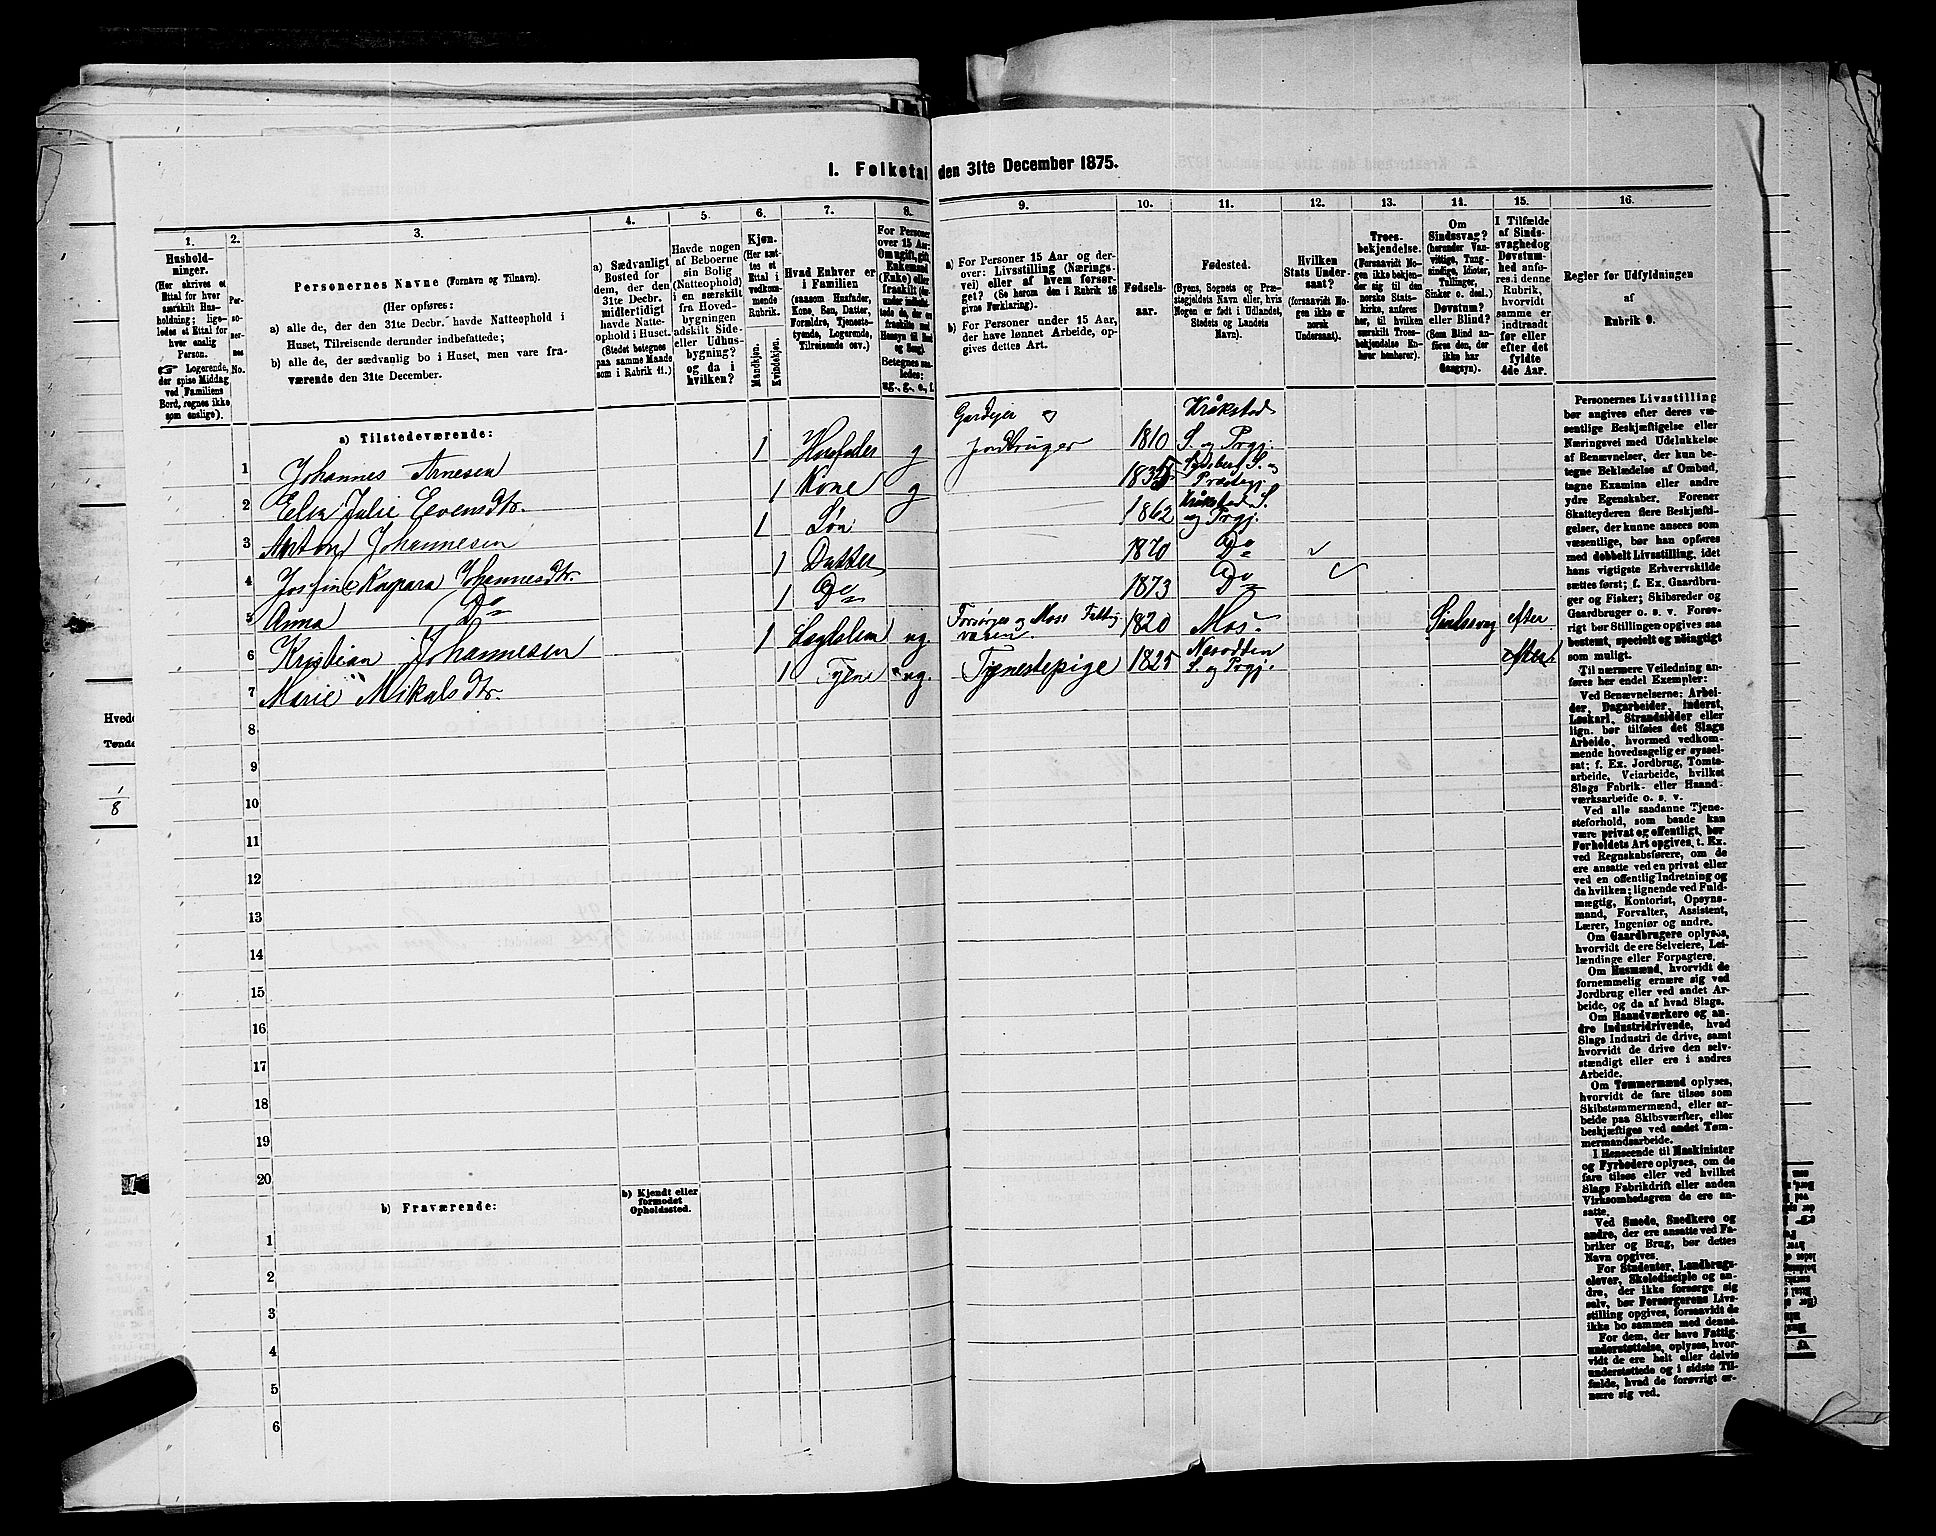 I. Folketal den 31te December 1875.
1. 2. 3. 4. 5. 6. 7. 8. 9. 10. 11. 12. 13. 14. 15. 16.
Hushold-
ninger.
(Her skrives et
Ettal for hver
særskilt Hus-
holdning; lige-
ledes et Ettal
for hver enslig
Person.
Logerende,
der spise Middag
ved Familiens
Bord, regnes ikke
som enslige).
Per-
so-
ner-
nes
No.
Personernes Navne (Fornavn og Tilnavn).
(Her opføres:
a) alle de, der den 31te Decbr. havde Natteophold i
Huset, Tilreisende derunder indbefattede;
b) alle de, der sædvanlig bo i Huset, men vare fra-
værende den 31te December.
a) Sædvanligt
Bosted for
dem, der den
31te Decbr.
midlertidigt
havde Natte-
ophold i Huset.
(Stedet betegnes
paa samme Maade
som i Rubrik 11.)
Havde nogen
af Beboerne
sin Bolig
(Natteophold)
i en særskilt
fra Hoved-
bygningen
adskilt Side-
eller Udhus-
bygning?
og da i
hvilken?
Kjøn.
(Her sæt-
tes et
Ettal i
vedkom-
mende
Rubrik.
Mandkjøn.
Kvindekjøn.
Hvad Enhver er
i Familien
(saasom Husfader,
Kone, Søn, Datter,
Forældre, Tjeneste-
tyende, Logerende,
Tilreisende osv.)
For Personer
over 15 Aar:
Om ugift, gift,
Enkemand
(Enke) eller
fraskilt
Betegnes saa-
ledes:
ug., g., e., f.
a) For Personer 15 Aar og der-
over: Livsstilling (Nærings-
vei) eller af hvem forsør-
get? (Se herom den i Rubrik 16
givne Forklaring).
b) For Personer under 15 Aar,
der have lønnet Arbeide, op-
gives dettes Art.
Fødsels-
aar.
Fødested.
(Byens, Sognets og Præ-
stegjeldets Navn eller, hvis
Nogen er født i Udlandet,
Stedets og Landets
Navn).
Hvilken
Stats Under-
saat?
(forsaavidt No-
gen ikke er
norsk
Undersaat).
Troes-
bekjendelse.
(Forsaavidt No-
gen ikke bekjen-
der sig til den
norske Stats-
kirke, anføres
her, til hvilken
særskilt Troes-
bekjendelse En-
hver henhører).
Om
Sindssvag?
(herunder Van-
vittige, Tung-
sindige, Idioter,
Tullinger,
Sinker o. desl.)
Døvstum?
eller Blind?
(Som Blind an-
føres den, der
ikke har
Gangsyn).
I Tilfælde
af Sinds-
svaghed og
Døvstum-
hed anfø-
res i denne
Rubrik,
hvorvidt
samme er
indtraadt
før eller
efter det
fyldte
4de Aar.
Regler for Udfyldningen
af
Rubrik 9.
a) Tilstedeværende:
1 Johannes Arnesen 1 Husfader g Gardejer og jordbruger 1810 Kråkstad S. og Prgj.
2 Elin Julie Evensdtr. 1 Kone g 1835 S. og Præstegj.
3 Anton Johannesen 1 Søn 1862 Kråkstad S. og Prgj.
4 Josfine Kaspara Johannesdtr. 1 Datter 1870 Do
5 Anna Do 1 Do 1873 Do
6 Kristian Johannesen 1 Loglalem ug. Forsørges og Moss Fattigvæsen 1820 Mos. Sindsvag efter
7 Marie Mikalsdtr. 1 Tjene ug. Tjenestepige 1825 Nesodden S. og Prgj. efter
8
9
10
11
12
13
14
15
16
17
18
19
20
b) Fraværende:
b) Kjendt eller
formodet
Opholdssted.
1
2
3
4
5
6
Personernes Livsstilling
bør angives efter deres væ-
sentlige Beskjæftigelse eller
Næringsvei med Udelukkelse
af Benævnelser, der kun be-
tegne Beklædelse af Ombud,
tagne Examina eller andre
ydre Egenskaber. Forener
Skatteyderen flere Beskjæfti-
gelser, der kunne ansees som
væsentlige, bør han opføres
med dobbelt Livsstilling, idet
hans vigtigste Erhvervskilde
sættes først; f. Ex. Gaardbru-
ger og Fisker; Skibsreder og
Gaardbruger o. s. v. Forøv-
rigt bør Stillingen opgives saa
bestemt, specielt og nøiagtigt
som muligt.
Til nærmere Veiledning an-
føres her endel Exempler:
Ved Benævnelserne: Arbei-
der, Dagarbeider, Inderst,
Løskarl, Strandsidder eller
lign. bør tilføies det Slags
Arbeide, hvormed vedkom-
mende hovedsagelig er syssel-
sat; f. Ex. Jordbrug, Tomte-
arbeide, Veiarbeide, hvilket
Slags Fabrik- eller Haand-
værksarbeide o. s. v.
Ved alle saadanne Tjene-
steforhold, som baade kan
være privat og offentligt, bør
Forholdets Art opgives, t. Ex.
ved Regnskabsførere, om de
ere ansatte ved en privat eller
ved en offentlig Indretning og
da hvilken; lignende ved Fuld-
mægtig, Kontorist, Opsyns-
mand, Forvalter, Assistent,
Lærer, Ingeniør og andre.
Om Gaardbrugere oplyses,
hvorvidt de ere Selveiere, Lei-
lændinge eller Forpagtere.
Om Husmænd, hvorvidt de
fornemmelig ernære sig ved
Jordbrug eller ved andet Ar-
beide, og da af hvad Slags.
Om Haandværkere og an-
dre Industridrivende, hvad
Slags Industri de drive, samt
hvorvidt de drive den selv-
stændigt eller ere i andres
Arbeide.
Om Tømmermænd oplyses,
hvorvidt de fare tilsøs som
Skibstømmermænd, eller ar-
beide paa Skibsværfter, eller
beskjæftiges ved andet Tøm-
mermandsarbeide.
I Henseende til Maskinister
og Fyrbødere oplyses, om de
fare tilsøs eller ved hvilket
Slags Fabrikdrift eller anden
Virksomhedsgren de ere an-
satte.
Ved Smede, Snedkere og
andre, der ere ansatte ved Fa-
briker og Brug, bør dettes
Navn opgives.
For Studenter, Landbrugs-
elever, Skoledisciple og an-
dre, der ikke forsørge sig
selv, bør Forsørgerens Livs-
stilling opgives, forsaavidt de
ikke bo sammen med denne.
For dem, der have Fattig-
understøttelse, oplyses, hvor-
vidt de ere helt eller delvis
understøttede og i sidste Til-
fælde, hvad de forøvrigt er-
nære sig ved.
Hvede
Tønde
1/8